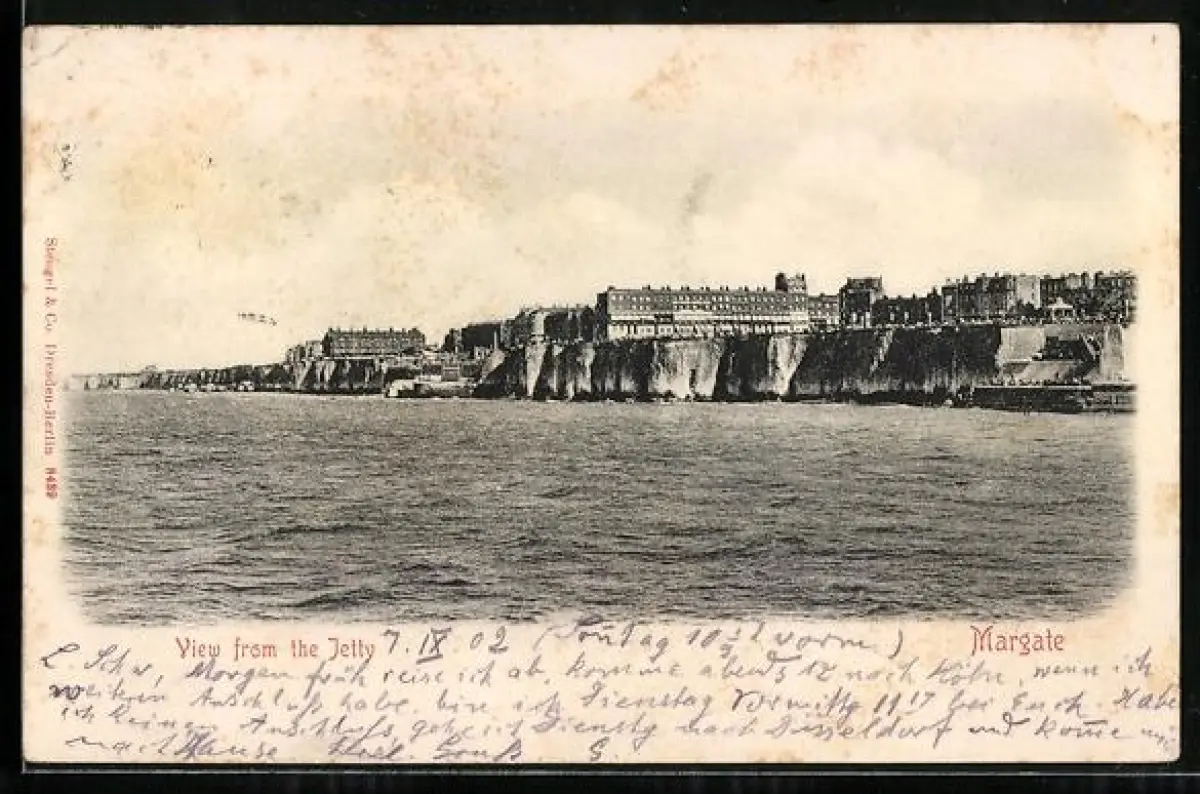 Stengel & Co. Dresden-Berlin 8489
View from the Jetty 7. IX. 02 (Sontag 10½ vorm.) Margate
L. Schw, Morgen früh reise ich ab, komme abends 12 nach Köln, wenn ich
weiteren Anschluß habe, bin ich Dienstag Vormittg 11 17 bei Euch. Habe
ich keinen Anschluss, gehe ich Dienstg nach Düsseldorf und kome
nach Hause Gruß S.